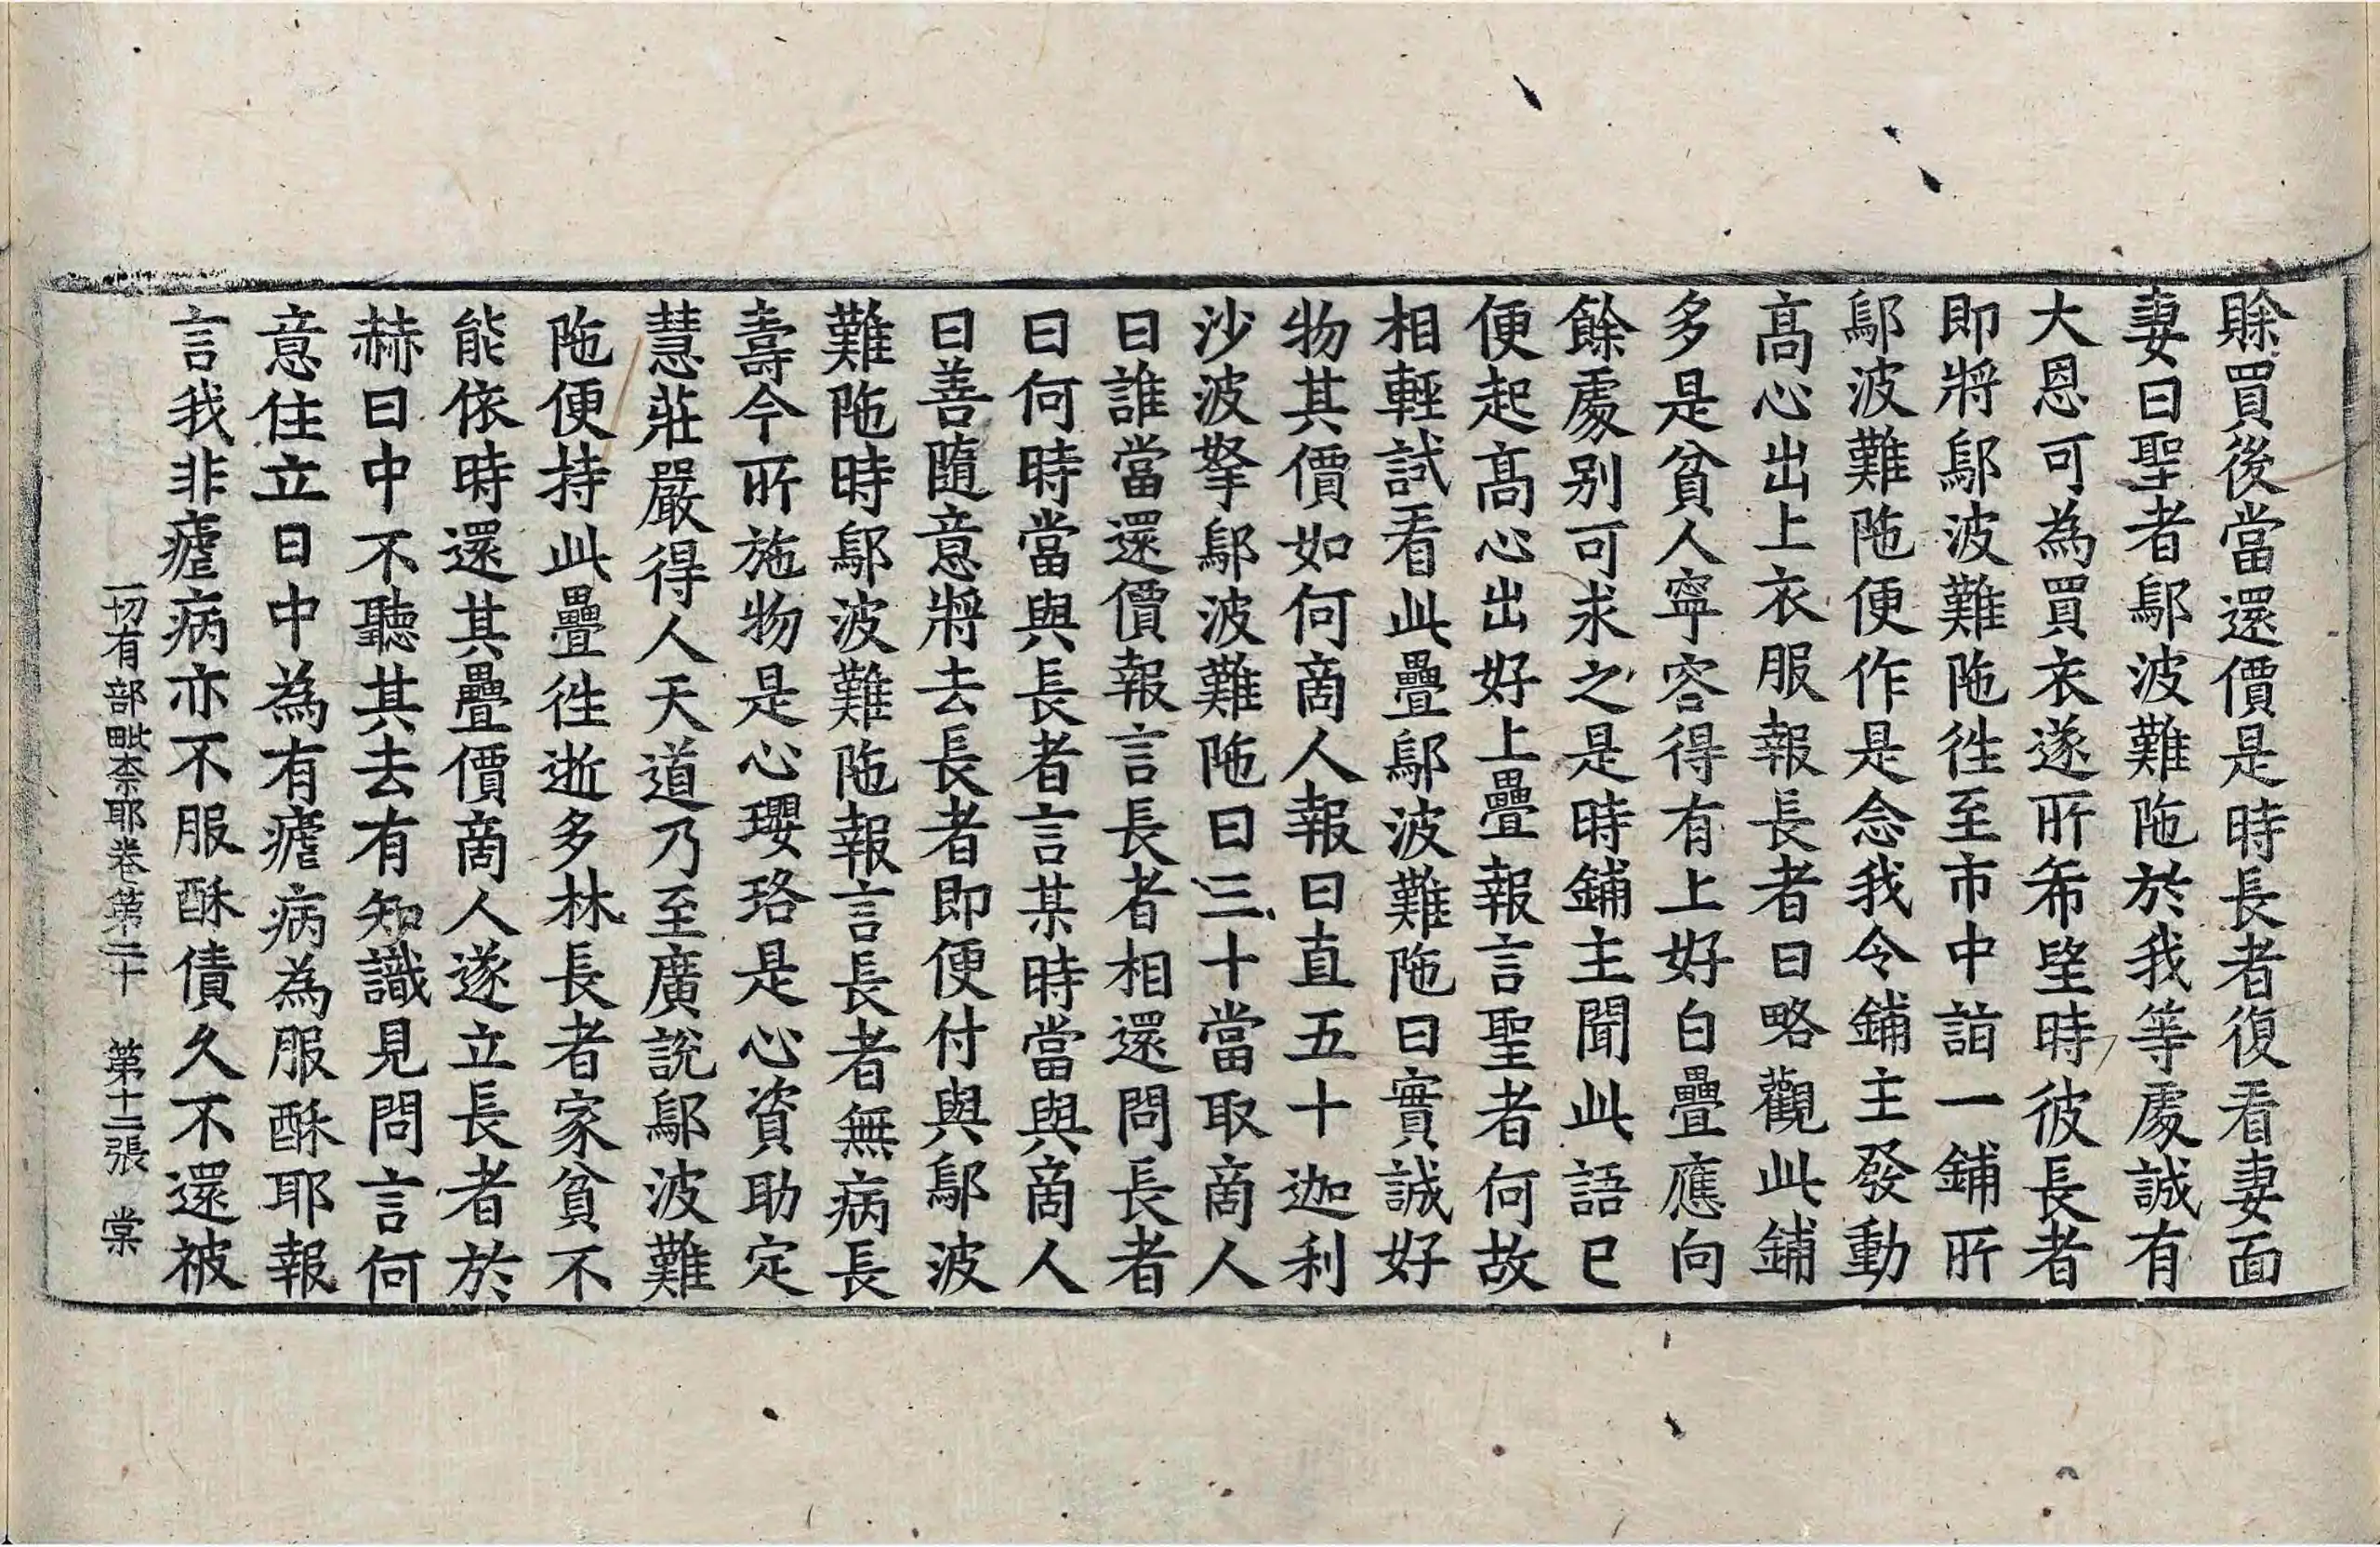 賖買後當還價是時長者復看妻面
妻曰聖者鄔波難陁於我等處誠有
大恩可為買衣遂所希望時彼長者
即將鄔波難陁徃至市中詣一鋪所
鄔波難陁便作是念我令鋪主發動
高心出上衣服報長者曰略觀此鋪
多是貧人寧容得有上好白疊應向
餘處别可求之是時鋪主聞此語已
便起高心出好上疊報言聖者何故
相輕試看此疊鄔波難陁曰實誠好
物其價如何商人報曰直五十迦利
沙波拏鄔波難陁曰三十當取商人
曰誰當還價報言長者相還問長者
曰何時當與長者言某時當與商人
曰善隨意將去長者即便付與鄔波
難陁時鄔波難陁報言長者無病長
壽今所施物是心瓔珞是心資助定
慧莊嚴得人天道乃至廣說鄔波難
陁便持此疊徃逝多林長者家貧不
能依時還其疊價商人遂立長者於
赫日中不聽其去有知識見問言何
意住立日中為有瘧病為服酥耶報
言我非瘧病亦不服酥債久不還被
一切有部毗柰耶卷第二十　第十二張　棠